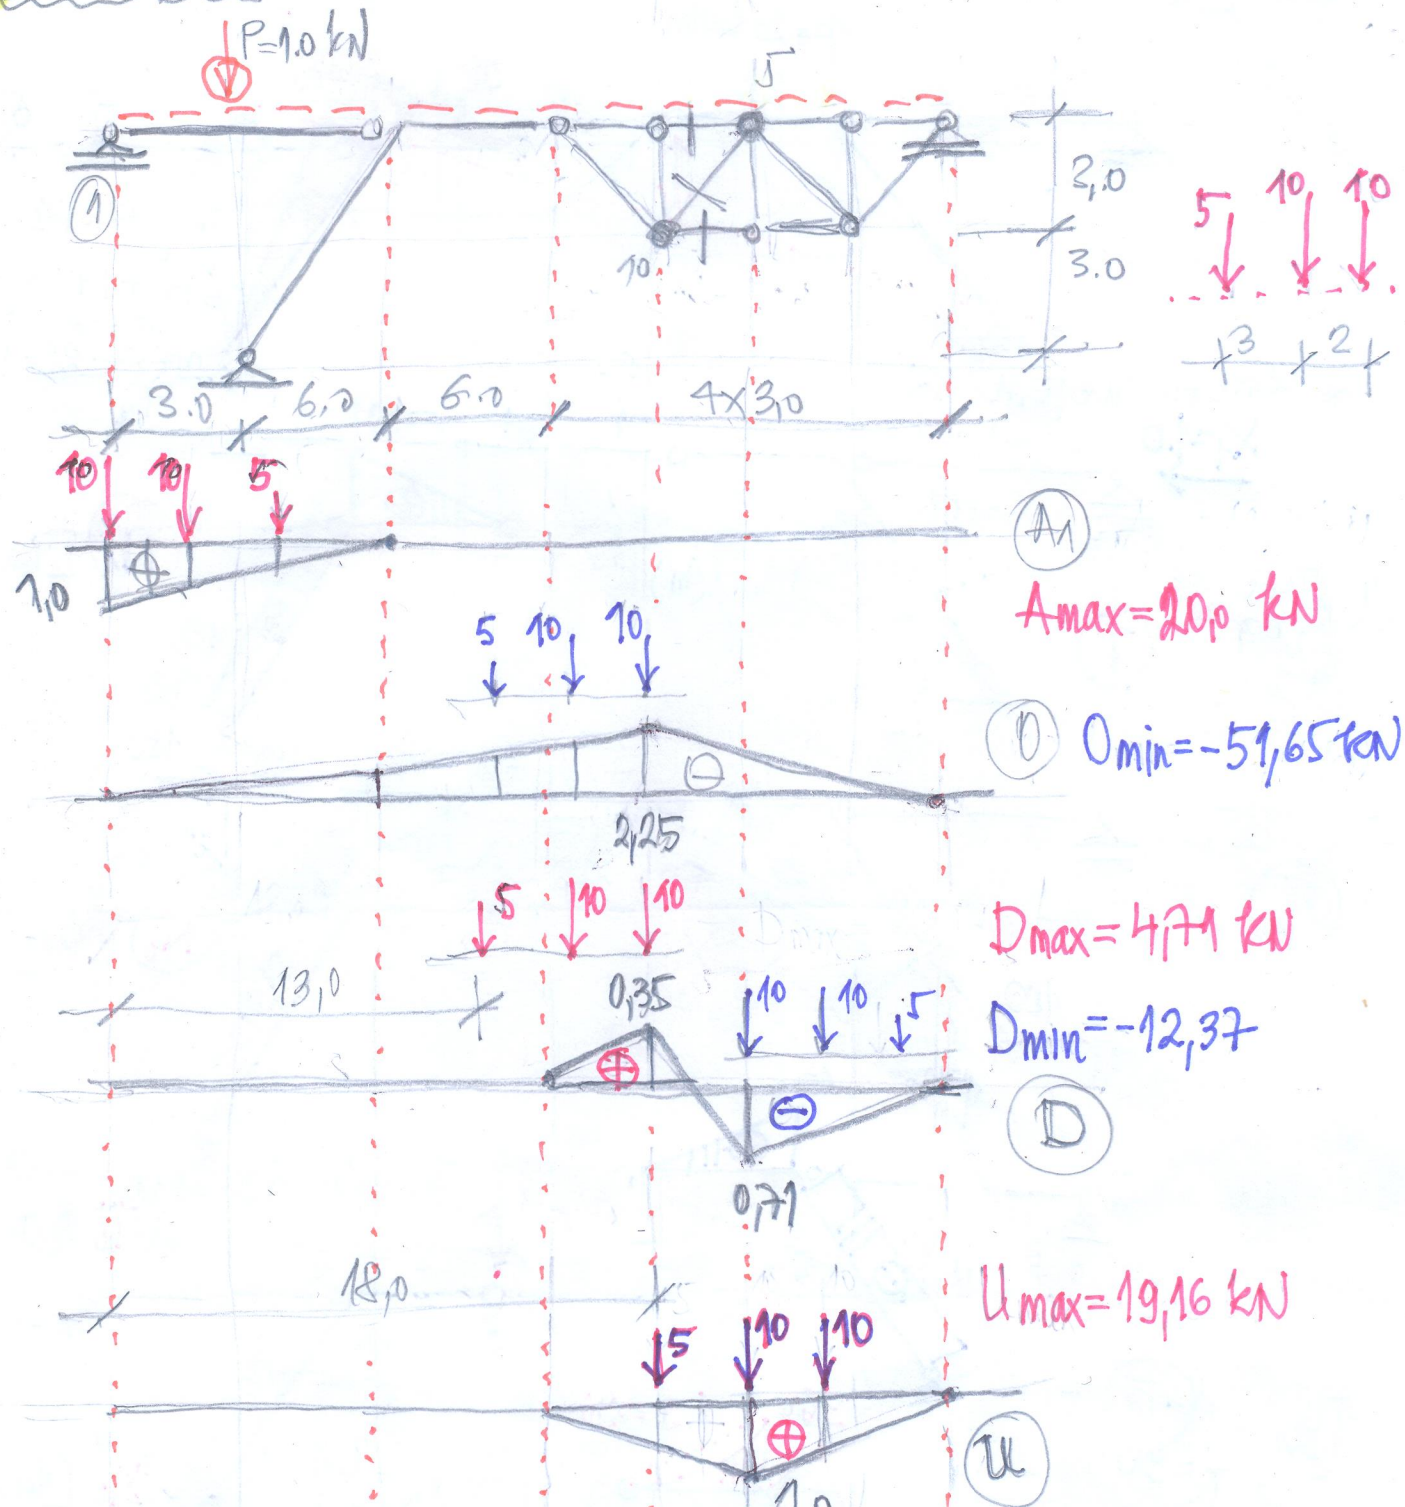 P=1.0 kN
5
1
10
3,0
3.0
5 10 10
3 2
3.0 6,0 6.0 4x3,0
10 10 5
A1
1,0
Amax=20,0 kN
5 10 10
O Omin=-51,65 kN
2,25
5 10 10
Dmax=4,71 kN
13,0
0,35
10 10 5
Dmin=-12,37
D
0,71
18,0
Umax=19,16 kN
5 10 10
U